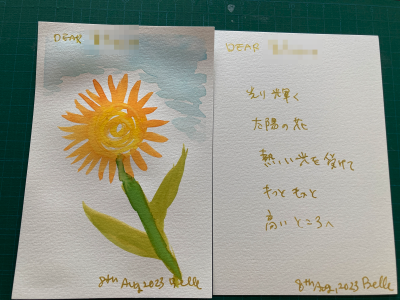 DEAR
8th Aug 2023 Belle
DEAR
光り輝く
太陽の花
熱い光を受けて
もっともっと
高いところへ
8th Aug, 2023 Belle